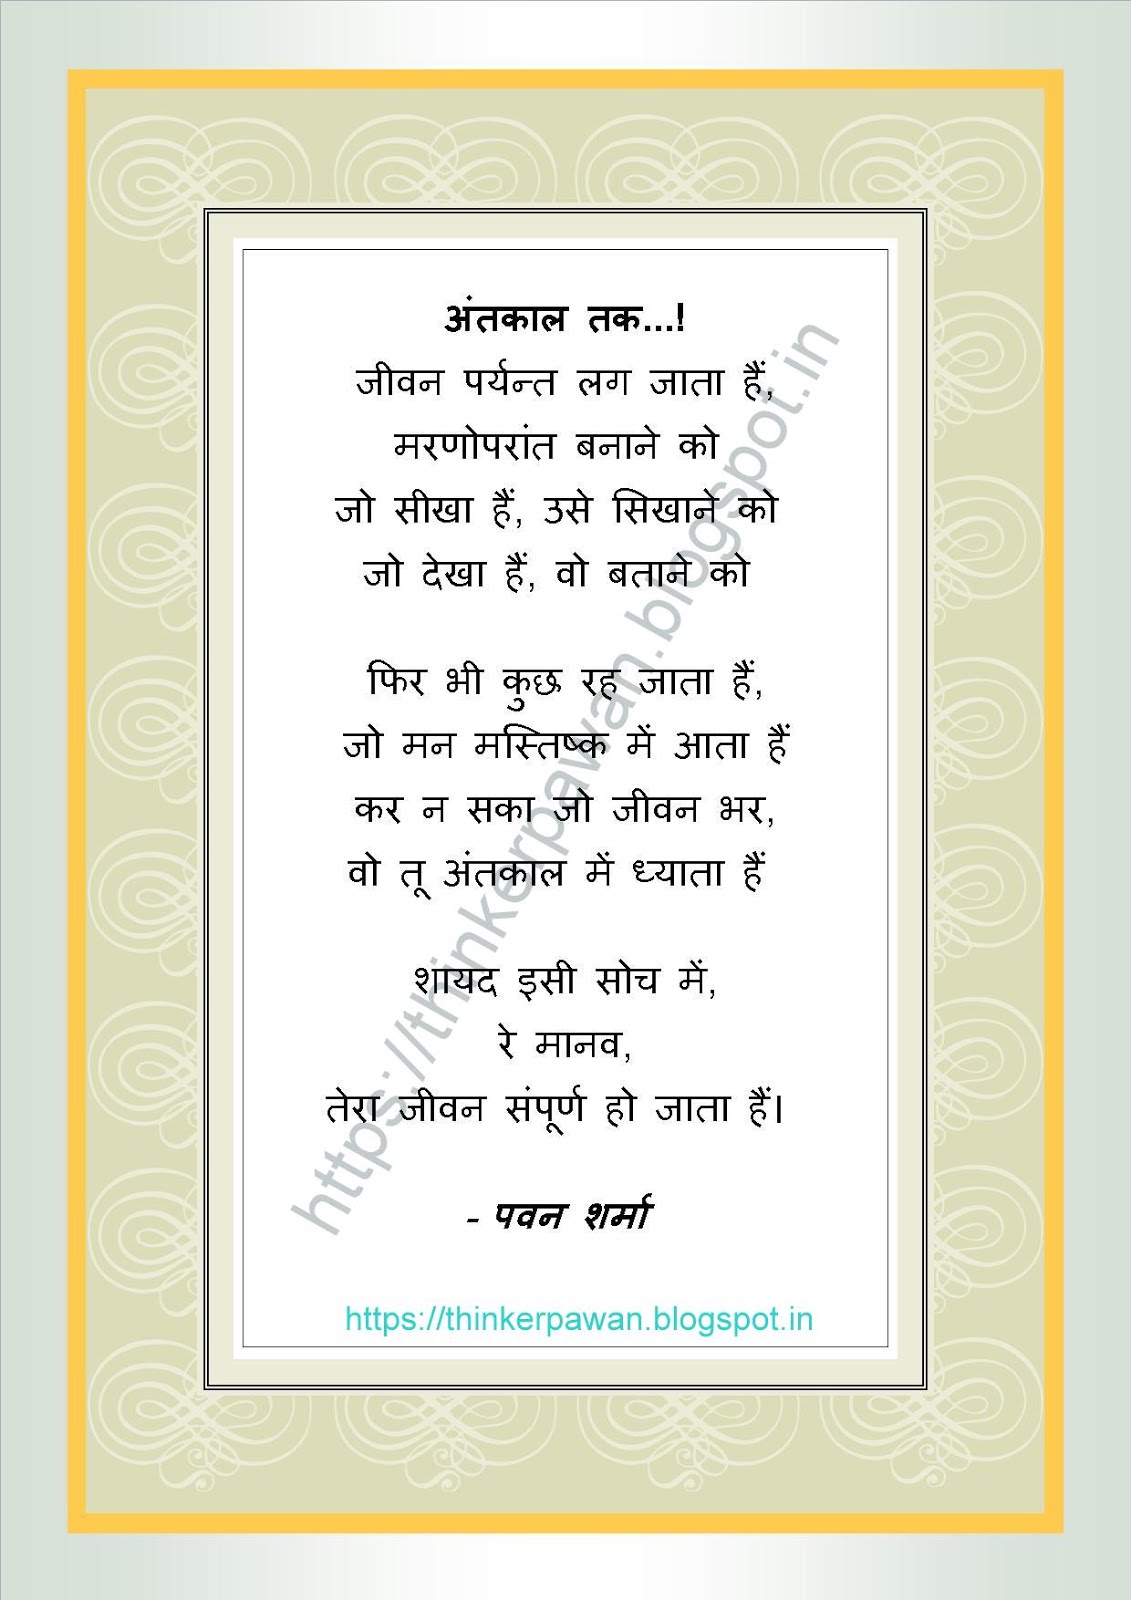 अंतकाल तक...!
जीवन पर्यन्त लग जाता हैं,
मरणोपरांत बनाने को
जो सीखा हैं, उसे सिखाने को
जो देखा हैं, वो बताने को
फिर भी कुछ रह जाता हैं,
जो मन मस्तिष्क में आता हैं
कर न सका जो जीवन भर,
वो तू अंतकाल में ध्याता हैं
शायद इसी सोच में,
रे मानव,
तेरा जीवन संपूर्ण हो जाता हैं।
- पवन शर्मा
https://thinkerpawan.blogspot.in
https://thinkerpawan.blogspot.in